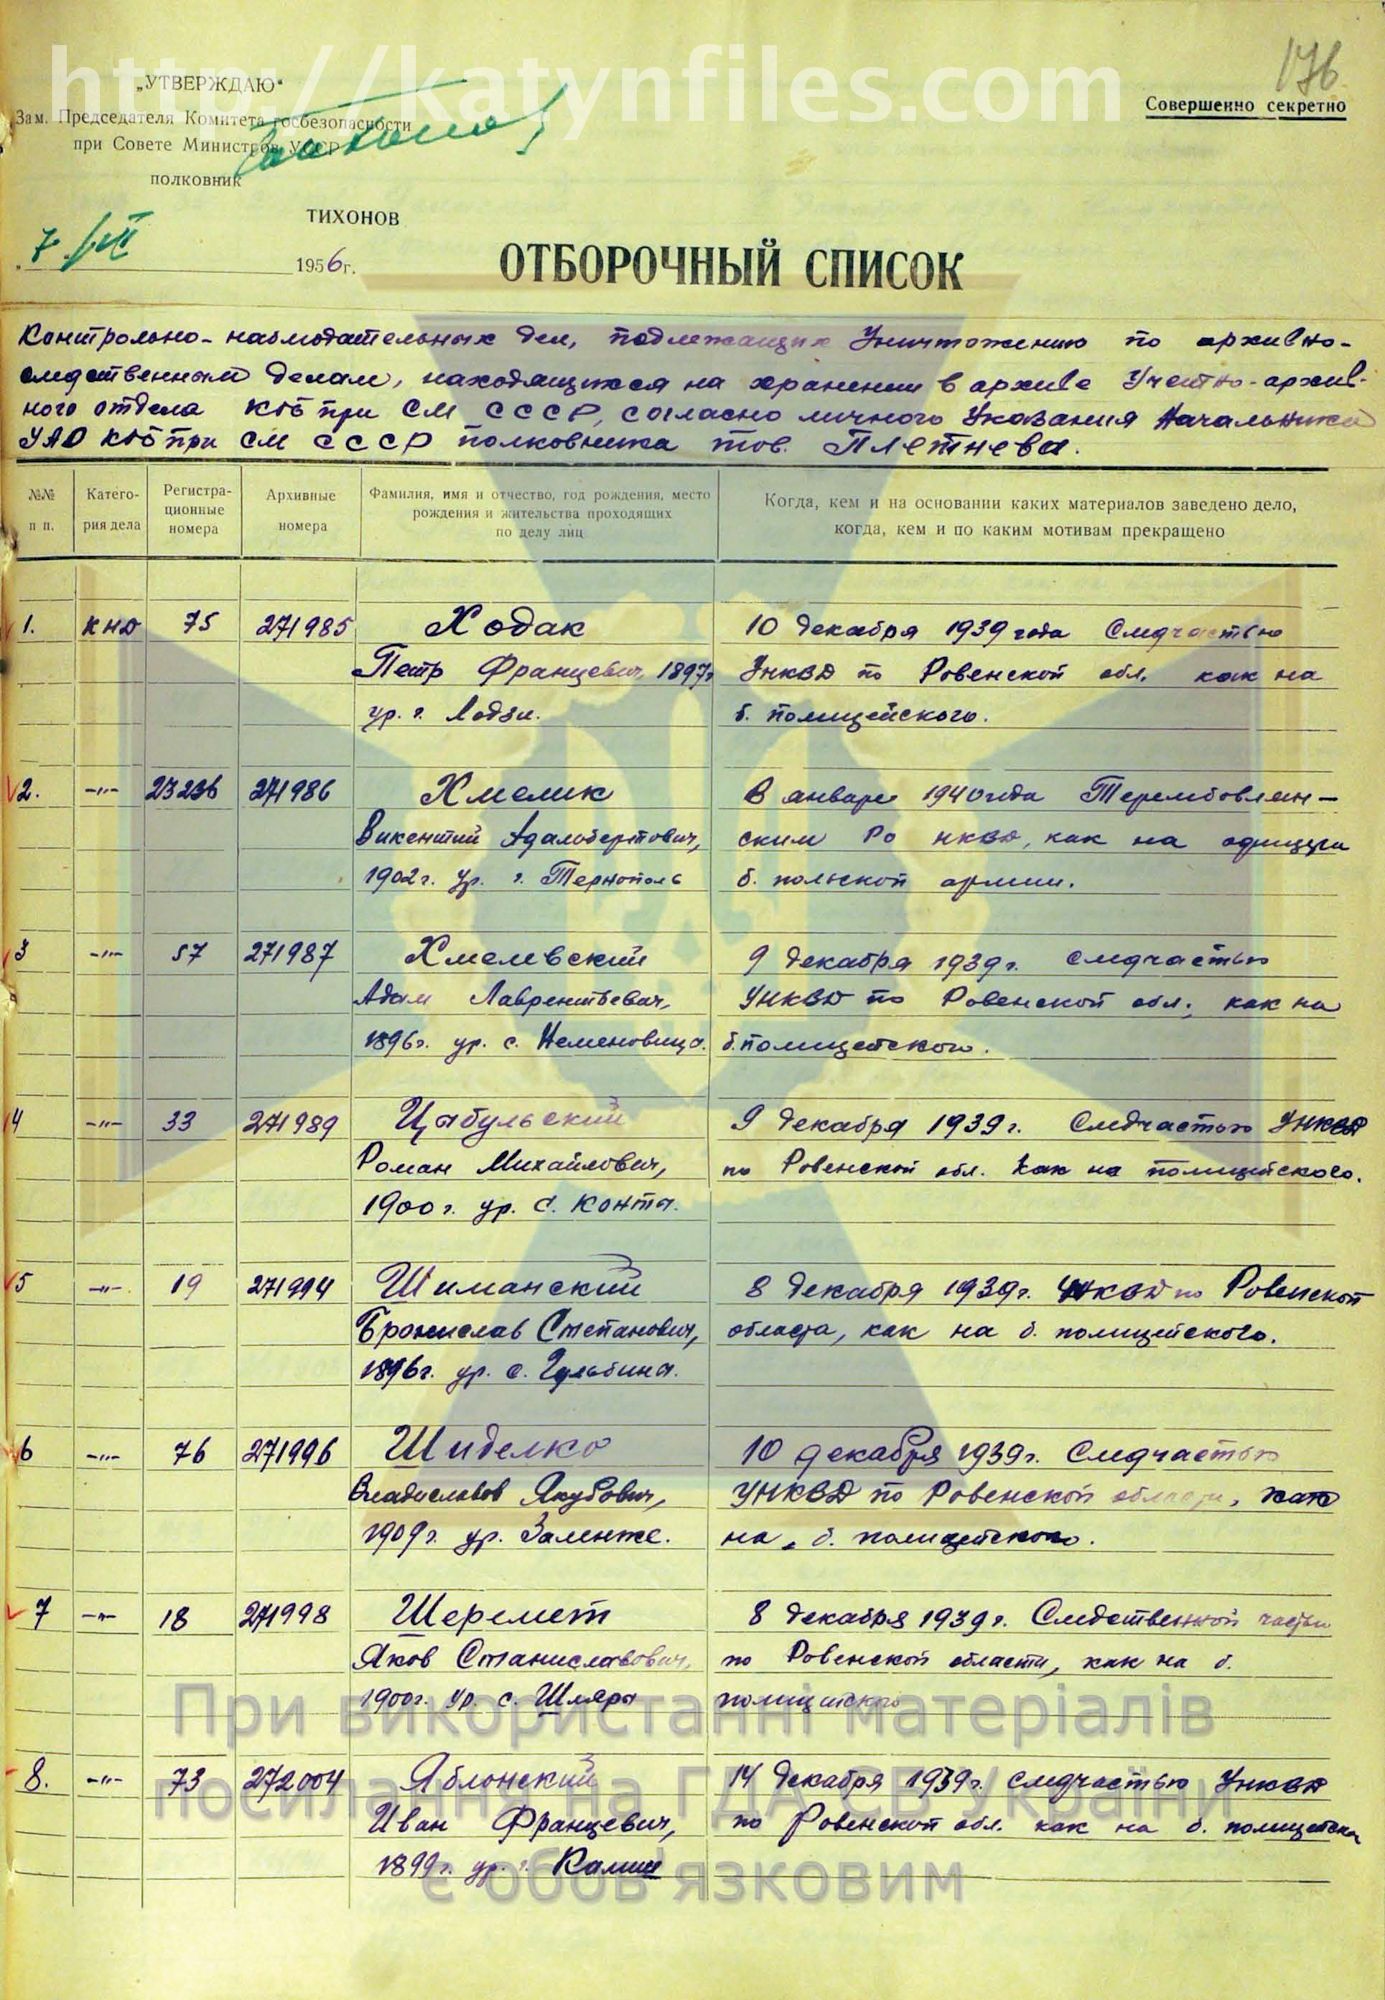 http://katynfiles.com
176
„УТВЕРЖДАЮ“
Совершенно секретно
Зам. Председателя Комитета госбезопасности
при Совете Министров УССР
полковник
ТИХОНОВ
1956 г.
ОТБОРОЧНЫЙ СПИСОК
Контрольно-наблюдательных дел, подлежащих Уничтожению по архивно-
следственным делам, находящихся на хранении в архиве Учетно-архив-
ного отдела КГБ при СМ СССР, согласно личного Указания Начальника
УАО КГБ при СМ СССР полковника тов. Плетнева.
№№ п п. Катего- рия дела Регистра- ционные номера Архивные номера Фамилия, имя и отчество, год рождения, место рождения и жительства проходящих по делу лиц Когда, кем и на основании каких материалов заведено дело, когда, кем и по каким мотивам прекращено
1. КНД 75 271985 Ходак 10 декабря 1939 года Следчастью
Петр Францевич 1897г УНКВД по Ровенской обл. как на
ур. г. Лодзи. б. полицейского.
2. -"- 23236 271986 Хмелик В январе 1940 года Теребовлян-
Викентий Адальбертович, ским Ро НКВД, как на офицера
1902 г. ур. г. Тернополь б. польской армии.
3 -"- 57 271987 Хмелевский 9 декабря 1939г. следчастью
Адам Лаврентьевич, УНКВД по Ровенской обл., как на
1896г. ур. с. б. полицейского.
4 -"- 33 271989 Цыбульский 9 декабря 1939г. Следчастью УНКВД
Роман Михайлович, по Ровенской обл. как на полицейского.
1900г. ур. с. Конта.
5 -"- 19 271994 Шиманский 8 декабря 1939г. УНКВД по Ровенской
Бронислав Степанович, области, как на б. полицейского.
1896г. ур. с. Гульбина.
6 -"- 76 271996 Шиделко 10 декабря 1939г. Следчастью
Владиславов Якубович, УНКВД по Ровенской области, как
1909г. ур. Заленже. на б. полицейского.
7 -"- 18 271998 Шеремет 8 декабря 1939г. Следственной частью
Яков Станиславович, по Ровенской области, как на б.
1900г. ур. с. Шляры полицейского
8. -"- 73 272004 Яблонский 14 декабря 1939г. следчастью УНКВД
Иван Францевич, по Ровенской обл. как на б.
1899г. ур. г. Калиш
При використанні матеріалів
посилання на ГДА СБ України
є обов'язковим